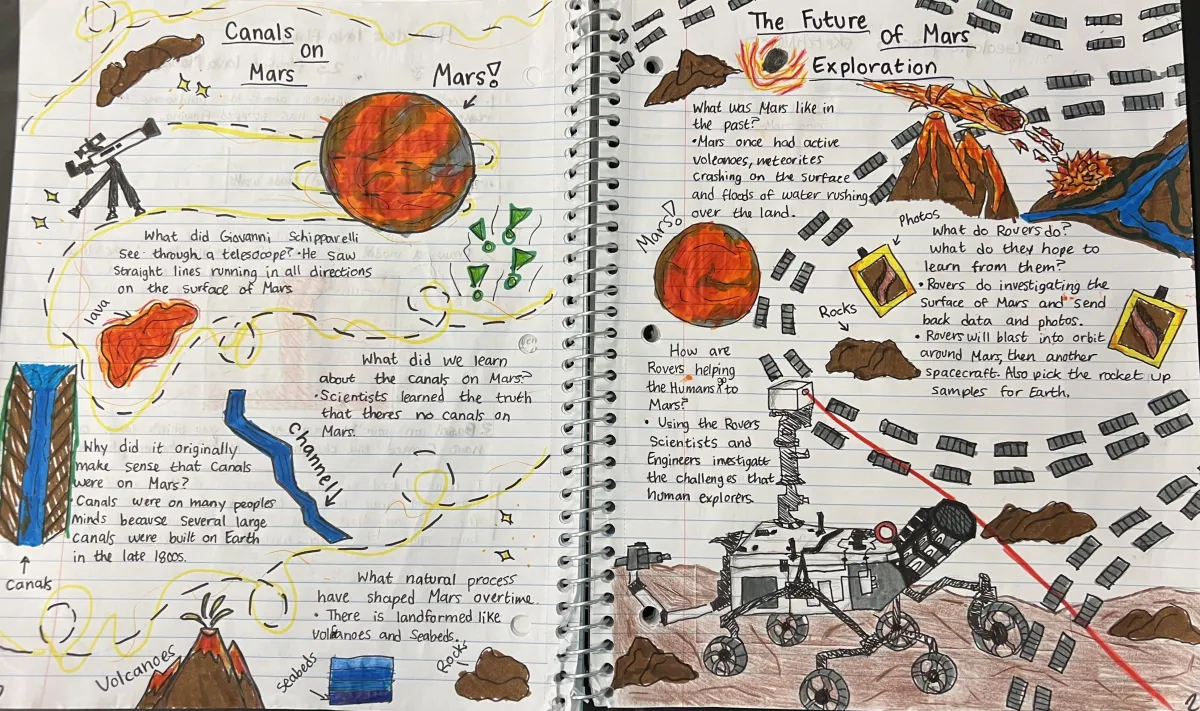 Canals
on
Mars
Mars!
What did Giovanni Schipparelli
see through a telesocope? • He saw
straight lines running in all directions
on the surface of Mars
lava
What did we learn
about the canals on Mars?
• Scientists learned the truth
that theres no canals on
Mars.
channel
Why did it originally
make sense that Canals
were on Mars?
Canals were on many peoples
minds because several large
canals were built on Earth
in the late 1800s.
Canals
What natural process
have shaped Mars overtime.
• There is landformed like
volcanoes and Seabeds.
Volcanoes
Seabeds
Rocks
The Future
of Mars
Exploration
What was Mars like in
the past?
• Mars once had active
volcanoes, meteorites
crashing on the surface
and floods of water rushing
over the land.
Mars!
Photos
What do Rovers do?
what do they hope to
learn from them?
• Rovers do investigating the
surface of Mars and send
back data and photos.
• Rovers will blast into orbit
around Mars, then another
spacecraft. Also pick the rocket up
samples for Earth.
Rocks
How are
Rovers helping
the Humans to
Mars?
• Using the Rovers
Scientists and
Engineers investigatt
the challenges that
human explorers.